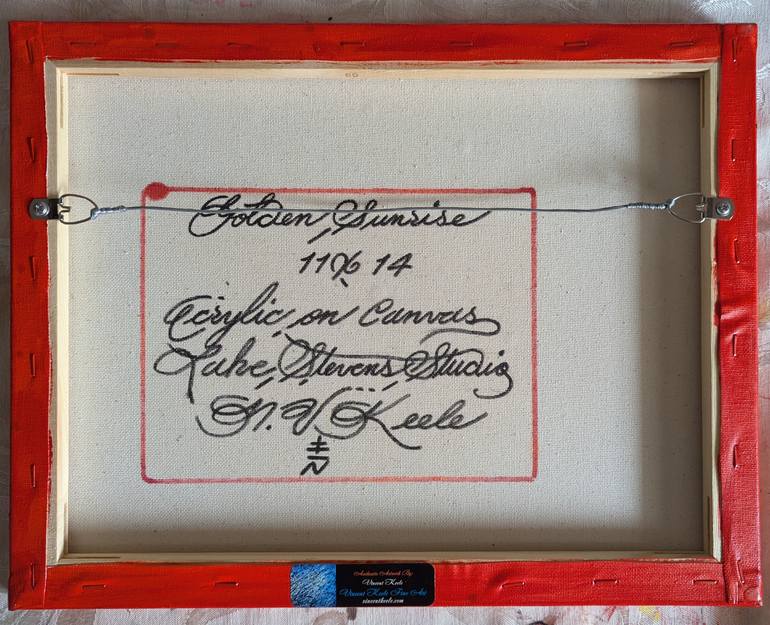 Golden Sunrise
11 X 14
Acrylic on Canvas
Lake Stevens Studio
N. V. Keele
Authentic Artwork By:
Vincent Keele
Vincent Keele Fine Art
vincentkeele.com